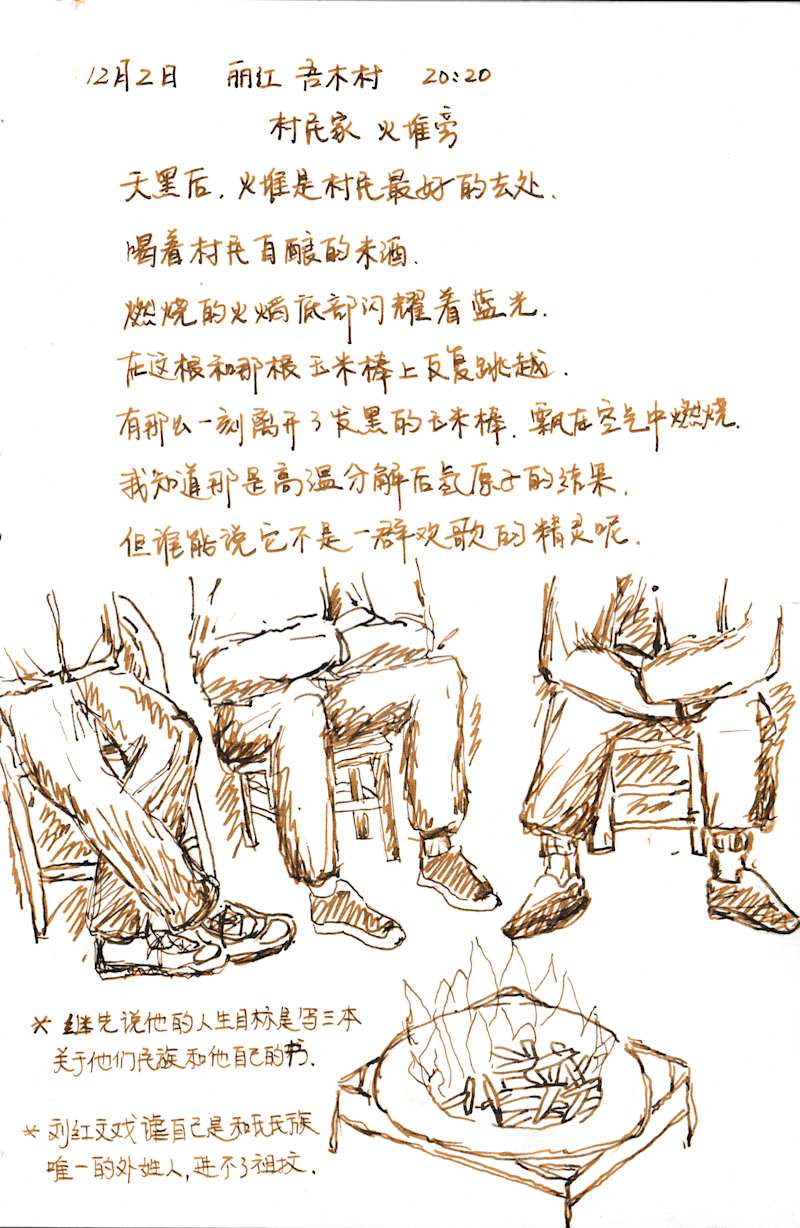 12月2日 丽江 吾木村 20:20
村民家 火堆旁
天黑后，火堆是村民最好的去处．
喝着村民自酿的米酒．
燃烧的火焰底部闪耀着蓝光．
在这根和那根玉米棒上反复跳越．
有那么一刻离开了发黑的玉米棒．飘在空气中燃烧．
我知道那是高温分解后氢原子的结果．
但谁能说它不是一群欢歌的精灵呢．
* 继先说他的人生目标是写三本
关于他们民族和他自己的书．
* 刘红文戏谑自己是和氏民族
唯一的外姓人，进不了祖坟．